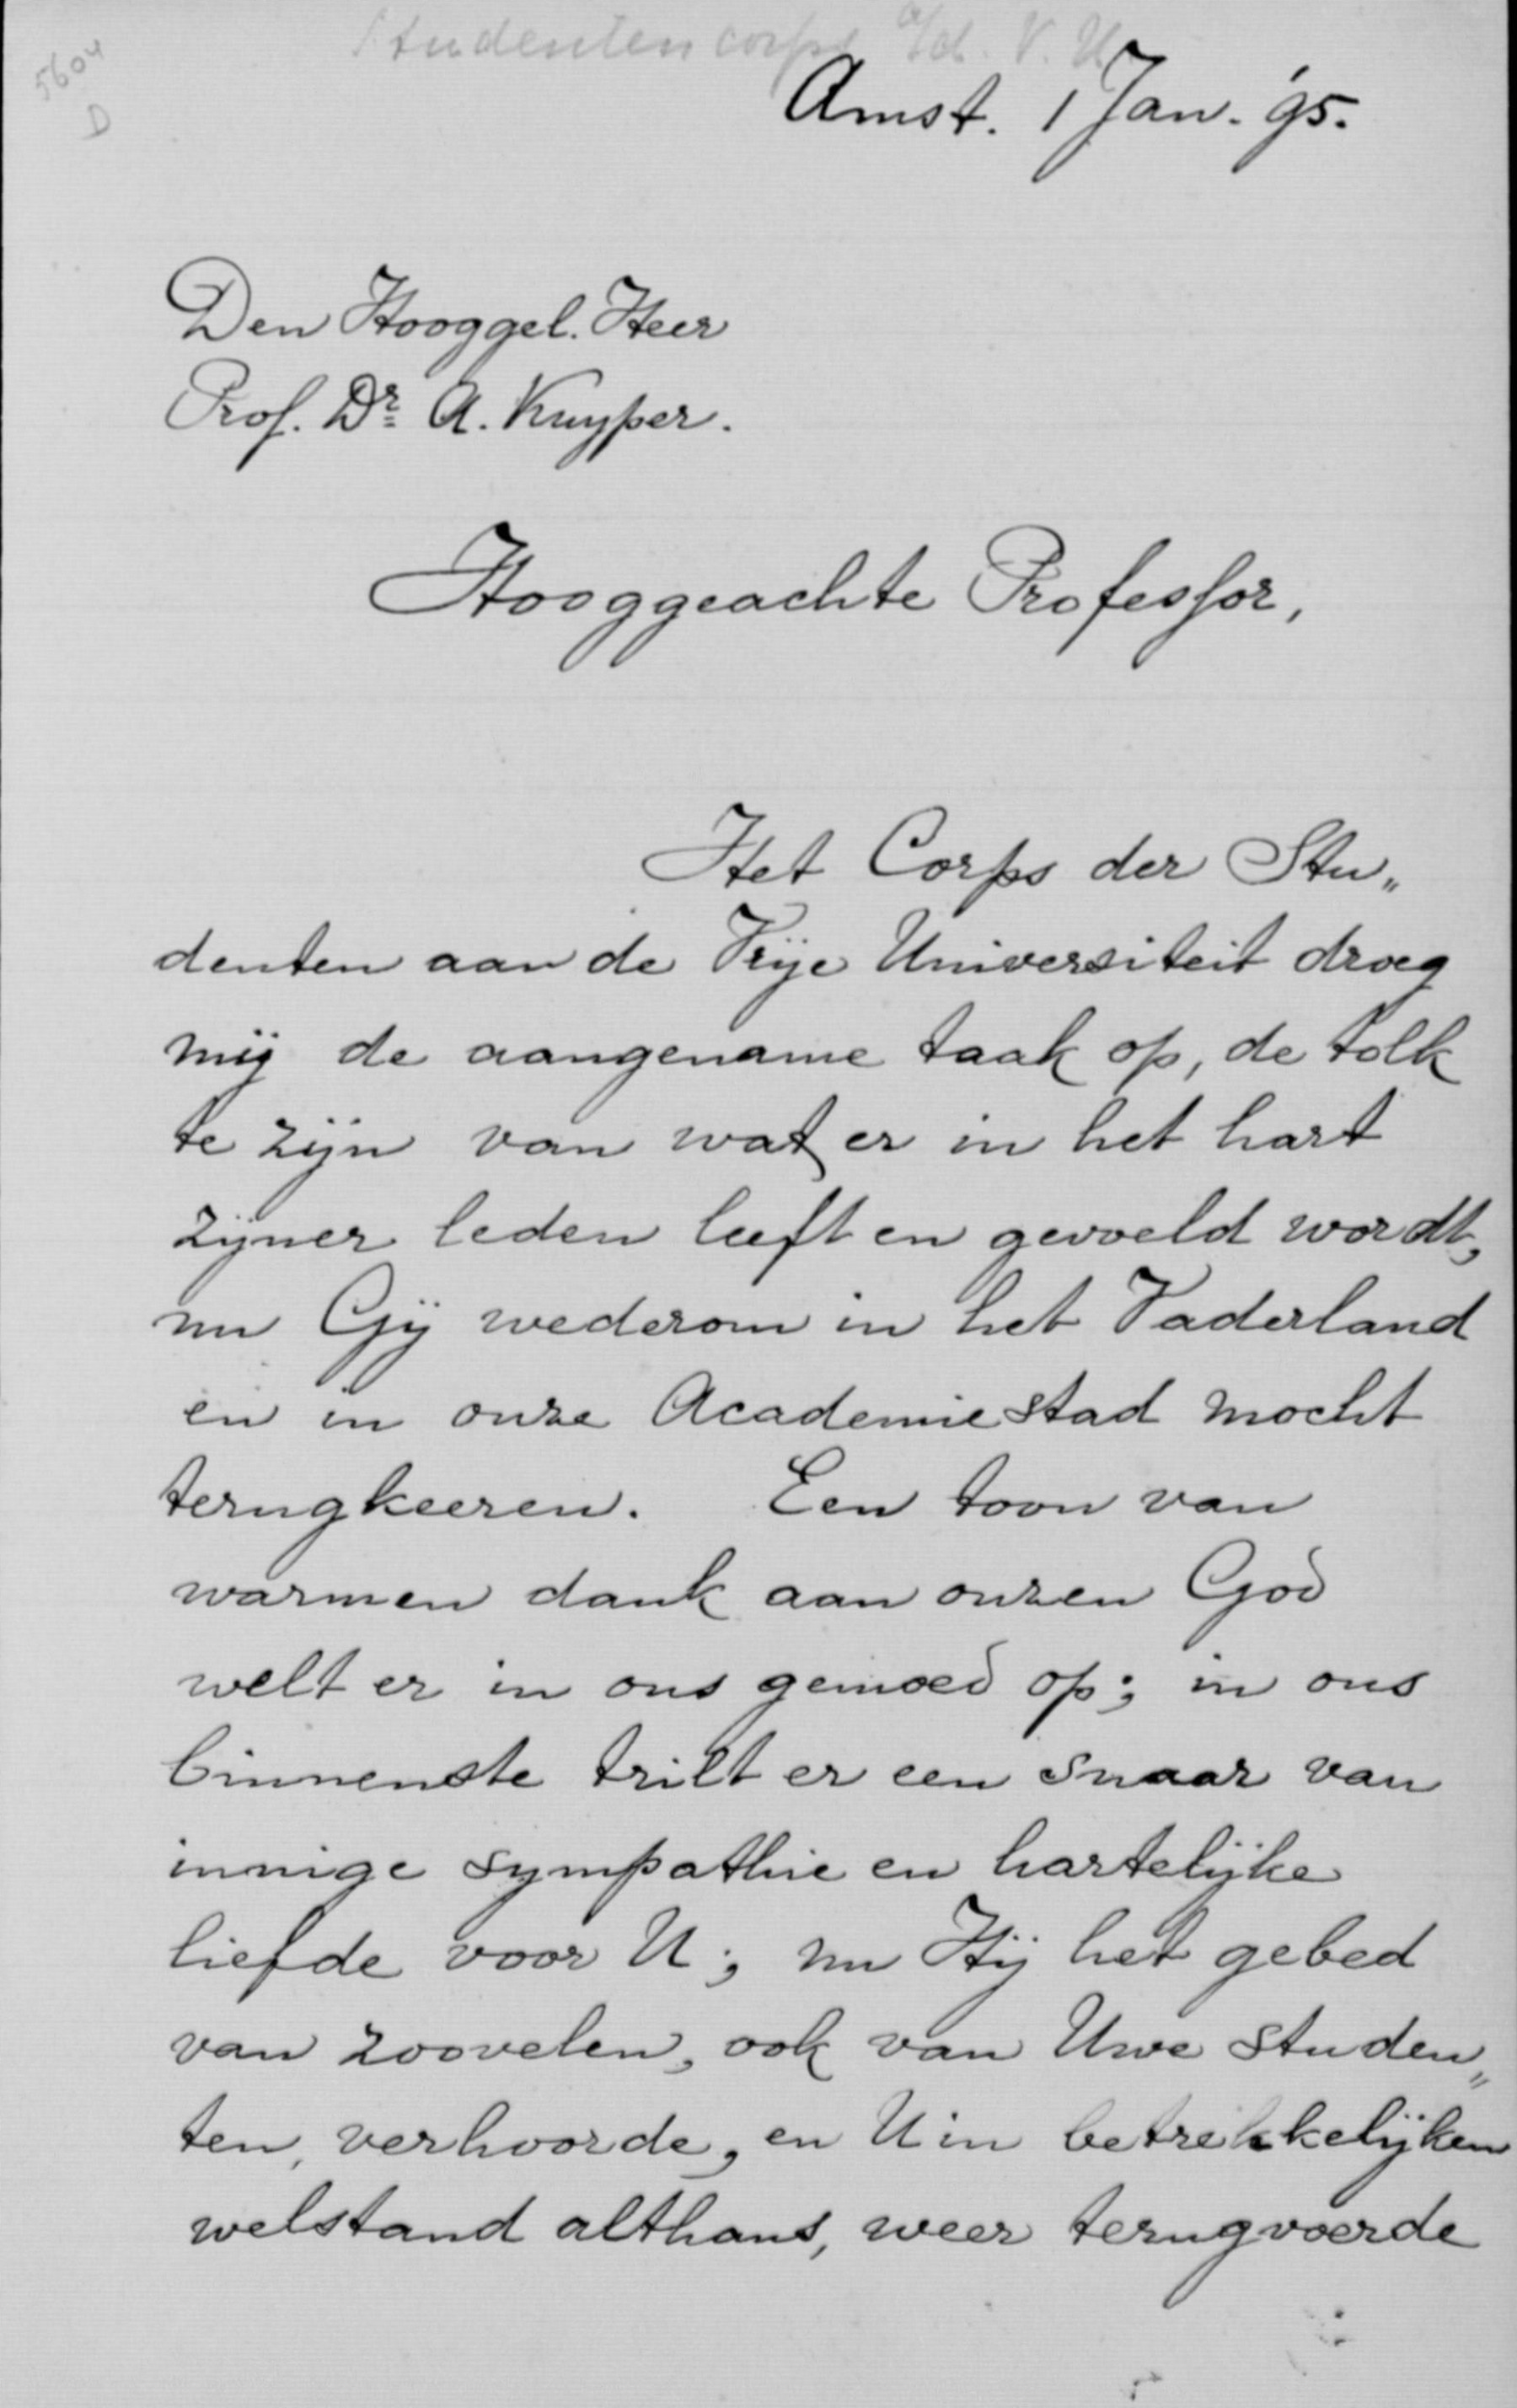 Studentencorps a/d. V. U
5604
D
Amst. 1 Jan. '95.
Den Hooggel. Heer
Prof. Dr A. Kuyper.
Hooggeachte Professor,
Het Corps der Stu„
denten aan de Vrije Universiteit droeg
mij de aangename taak op, de tolk
te zijn van wat er in het hart
zijner leden leeft en gevoeld wordt,
nu Gij wederom in het Vaderland
en in onze Academiestad mocht
terugkeeren. Een toon van
warmen dank aan onzen God
welt er in ons gemoed op; in ons
binnenste trilt er een snaar van
innige sympathie en hartelijke
liefde voor U; nu Hij het gebed
van zoovelen, ook van Uwe studen„
ten, verhoorde, en U in betrekkelijken
welstand althans, weer terugvoerde